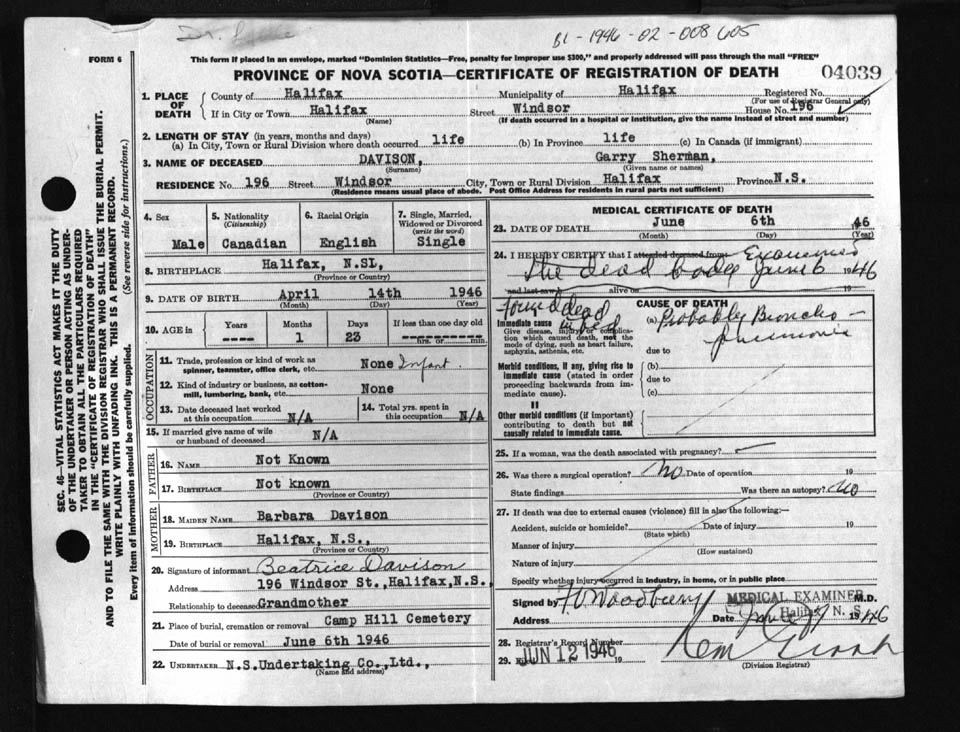 Dr.
BL - 1946 - 02 - 008605
FORM 6
This form if placed in an envelope, marked "Dominion Statistics—Free, penalty for improper use $300," and properly addressed will pass through the mail "FREE"
PROVINCE OF NOVA SCOTIA—CERTIFICATE OF REGISTRATION OF DEATH
04039
SEC. 46—VITAL STATISTICS ACT MAKES IT THE DUTY
OF THE UNDERTAKER OR PERSON ACTING AS UNDER-
TAKER TO OBTAIN ALL THE PARTICULARS REQUIRED
IN THE "CERTIFICATE OF REGISTRATION OF DEATH"
AND TO FILE THE SAME WITH THE DIVISION REGISTRAR WHO SHALL ISSUE THE BURIAL PERMIT.
WRITE PLAINLY WITH UNFADING INK. THIS IS A PERMANENT RECORD.
Every item of information should be carefully supplied. (See reverse side for instructions.)
1. PLACE OF DEATH
County of Halifax Municipality of Halifax Registered No.
(For use of Registrar General only)
If in City or Town Halifax Street Windsor House No. 196
(Name) (If death occurred in a hospital or institution, give the name instead of street and number)
2. LENGTH OF STAY (in years, months and days)
(a) In City, Town or Rural Division where death occurred life (b) In Province life (c) In Canada (if immigrant)
3. NAME OF DECEASED DAVISON, Garry Sherman
(Surname) (Given name or names)
RESIDENCE No. 196 Street Windsor City, Town or Rural Division Halifax Province N.S.
(Residence means usual place of abode. Post Office Address for residents in rural parts not sufficient)
4. Sex Male
5. Nationality (Citizenship) Canadian
6. Racial Origin English
7. Single, Married, Widowed or Divorced (write the word) Single
8. BIRTHPLACE Halifax, N.SL,
(Province or Country)
9. DATE OF BIRTH April 14th 1946
(Month) (Day) (Year)
10. AGE in Years ---- Months 1 Days 23 If less than one day old
hrs. or min.
OCCUPATION
11. Trade, profession or kind of work as
spinner, teamster, office clerk, etc. None Infant.
12. Kind of industry or business, as cotton-
mill, lumbering, bank, etc. None
13. Date deceased last worked
at this occupation N/A
14. Total yrs. spent in
this occupation N/A
15. If married give name of wife
or husband of deceased N/A
FATHER
16. NAME Not Known
17. BIRTHPLACE Not known
(Province or Country)
MOTHER
18. MAIDEN NAME Barbara Davison
19. BIRTHPLACE Halifax, N.S.,
(Province or Country)
20. Signature of informant Beatrice Davison
Address 196 Windsor St., Halifax, N.S.,
Relationship to deceased Grandmother
21. Place of burial, cremation or removal Camp Hill Cemetery
Date of burial or removal June 6th 1946
22. UNDERTAKER N.S.Undertaking Co.,Ltd.,
(Name and address)
MEDICAL CERTIFICATE OF DEATH
23. DATE OF DEATH June 6th 46
(Month) (Day) (Year)
24. I HEREBY CERTIFY that I attended deceased from Examined
the dead body June 6 1946
and last saw alive on 19
found dead
in bed
CAUSE OF DEATH
Immediate cause
Give disease, injury or complica-
tion which caused death, not the
mode of dying, such as heart failure,
asphyxia, asthenia, etc.
(a) Probably Broncho-
pneumonia
due to
Morbid conditions, if any, giving rise to
immediate cause (stated in order
proceeding backwards from im-
mediate cause).
(b)
due to
(c)
II
Other morbid conditions (if important)
contributing to death but not
causally related to immediate cause.
25. If a woman, was the death associated with pregnancy?
26. Was there a surgical operation? No Date of operation 19
State findings Was there an autopsy? No
27. If death was due to external causes (violence) fill in also the following:—
Accident, suicide or homicide? Date of injury 19
(State which)
Manner of injury
(How sustained)
Nature of injury
Specify whether injury occurred in industry, in home, or in public place
Signed by F.V. Woodbury M.D.
MEDICAL EXAMINER
Halifax N. S.
Address Date 1946
28. Registrar's Record Number
29. Filed JUN 12 1946 19
(Division Registrar)